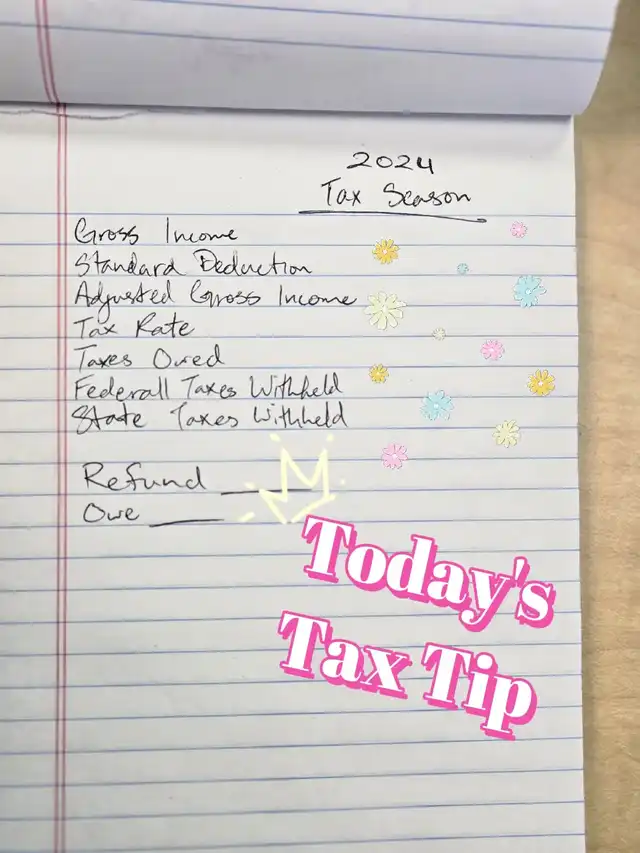 2024
Tax Season
Gross Income
Standard Deduction
Adjusted Gross Income
Tax Rate
Taxes Owed
Federall Taxes Withheld
State Taxes Withheld
Refund ____
Owe ____
Today's
Tax Tip